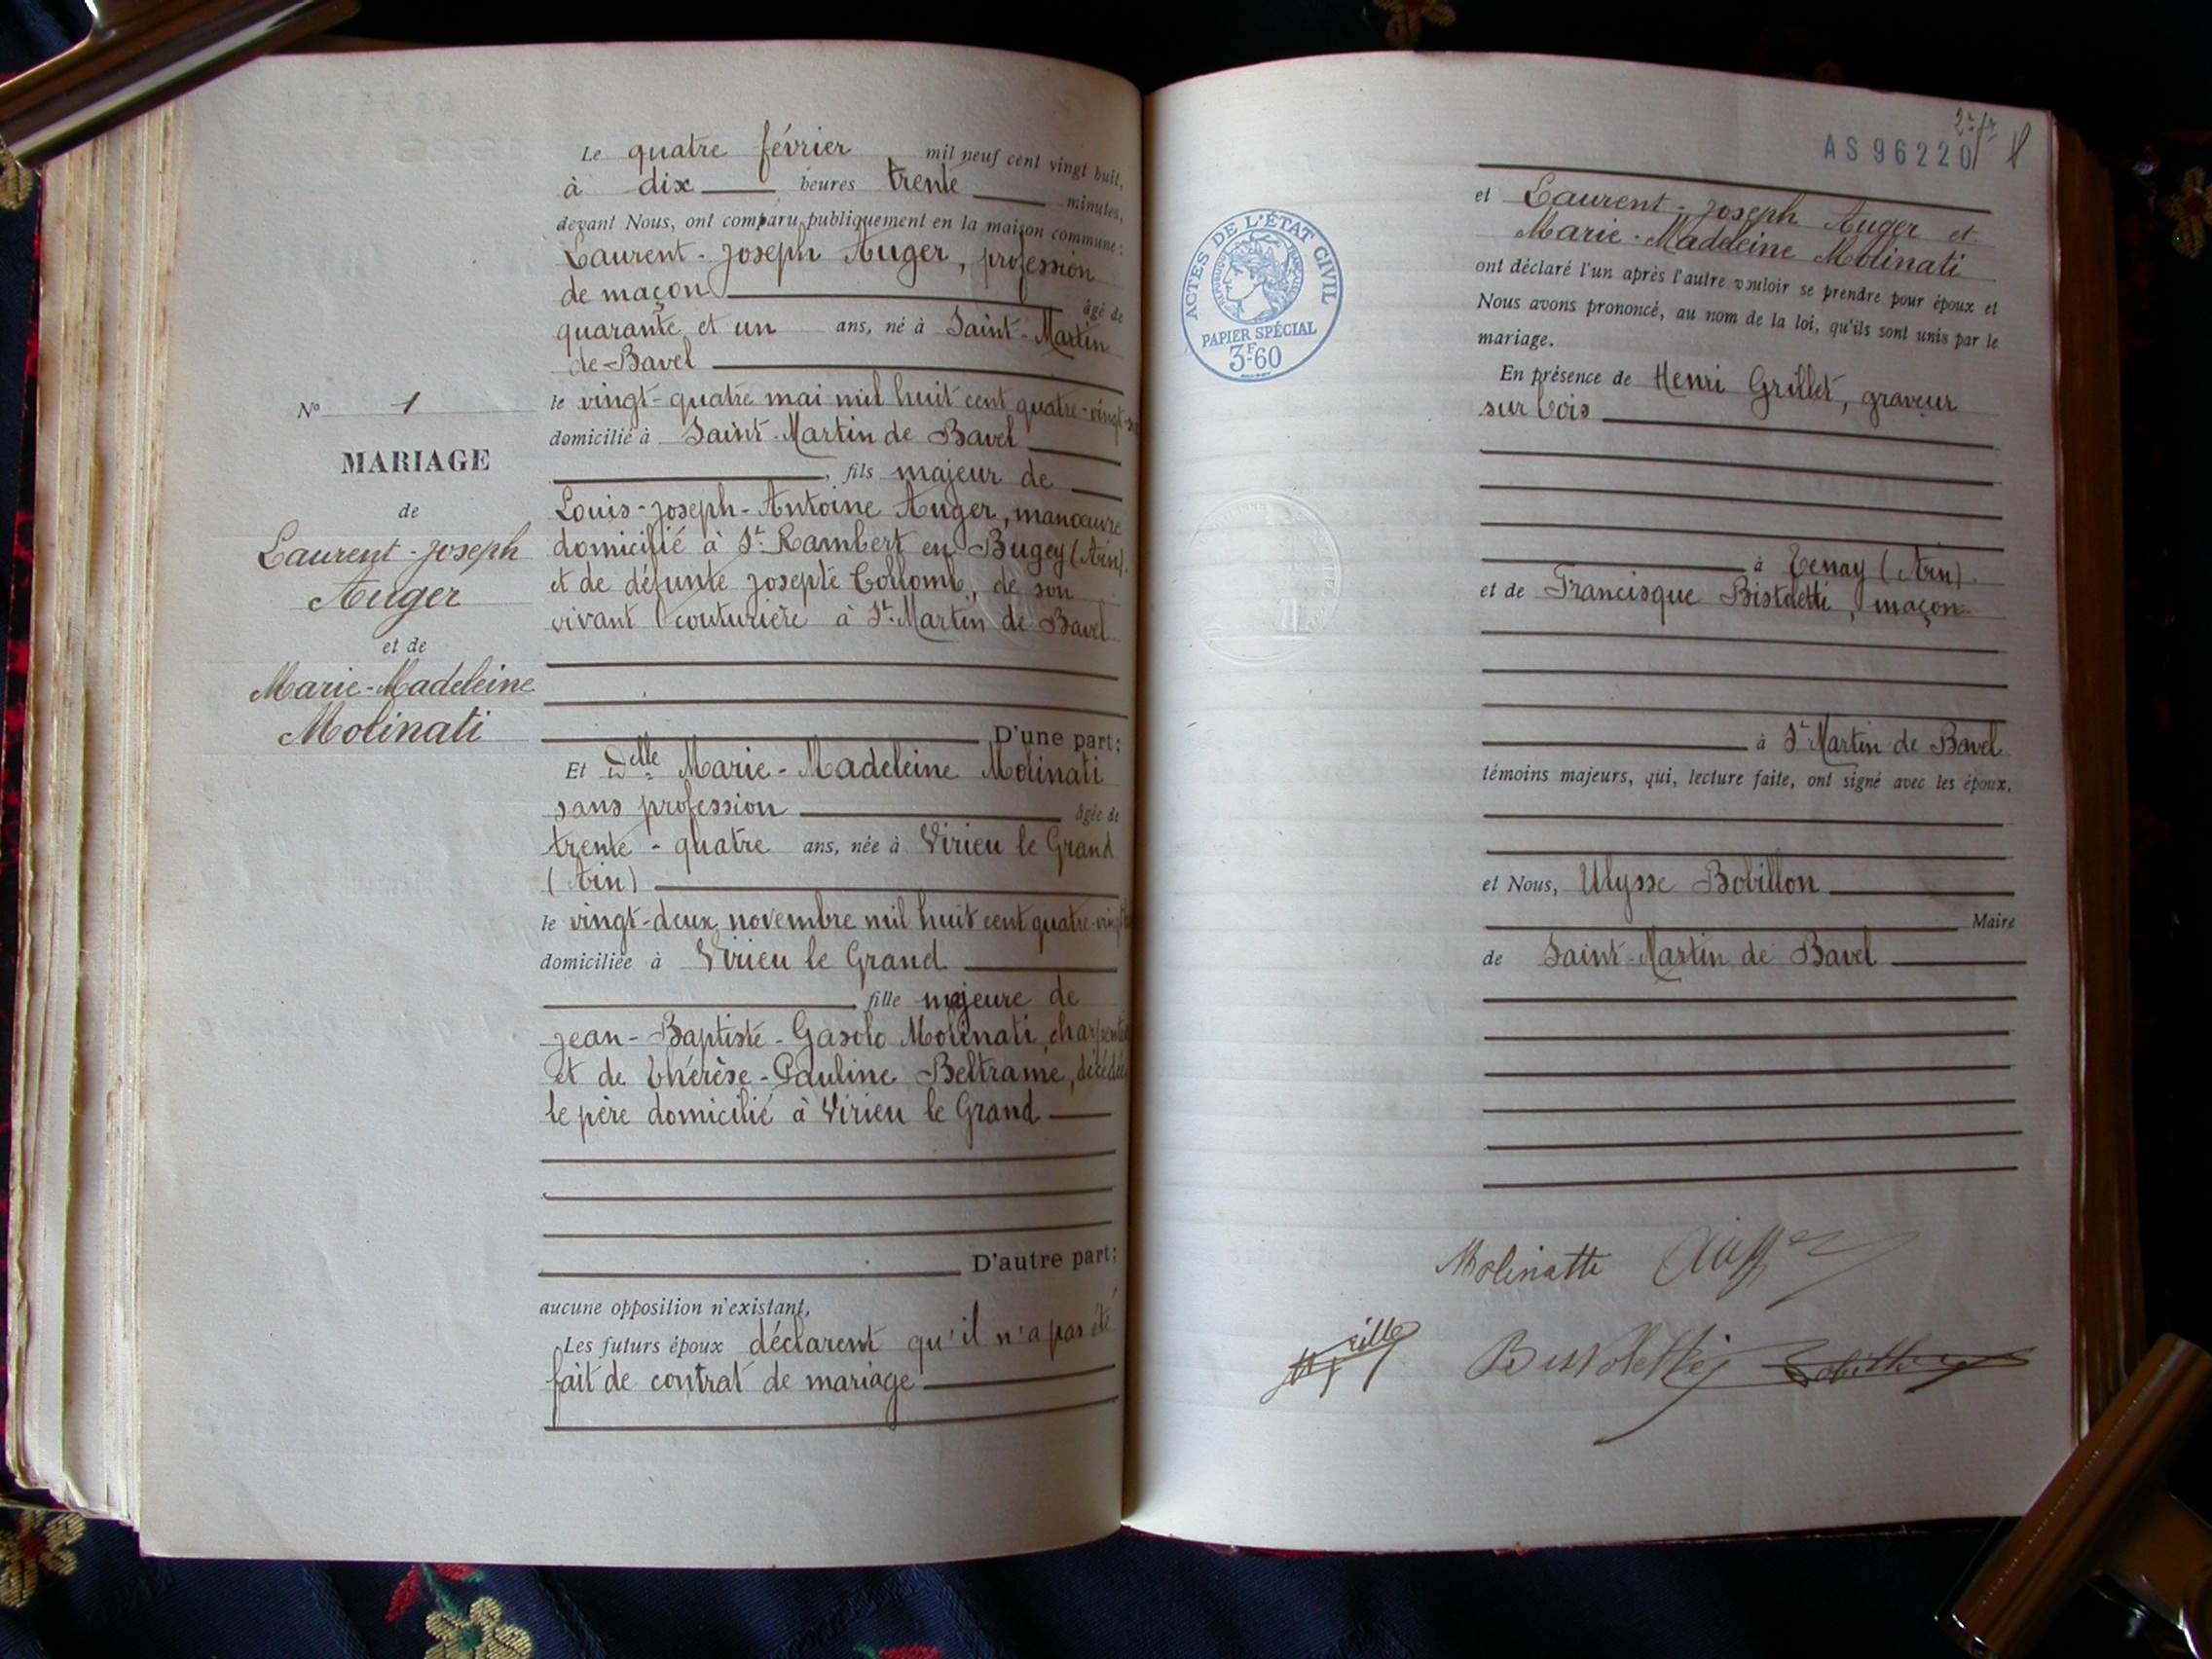 Le quatre février mil neuf cent vingt huit,
à dix heures trente minutes,
devant Nous, ont comparu publiquement en la maison commune:
Laurent-Joseph Auger, profession
de maçon âgé de
quarante et un ans, né à Saint-Martin
de-Bavel
le vingt-quatre mai mil huit cent quatre-vingt-
domicilié à Saint-Martin de Bavel
, fils majeur de
Louis-Joseph-Antoine Auger, manœuvre
domicilié à St Rambert en Bugey (Ain).
et de défunte Josepte Collomb, de son
vivant couturière à St Martin de Bavel
D'une part:
Et Delle Marie-Madeleine Molinati
sans profession âgée de
trente-quatre ans, née à Virieu le Grand
(Ain)
le vingt-deux novembre mil huit cent quatre-vingt
domiciliée à Virieu le Grand
fille majeure de
Jean-Baptiste-Gasolo Molinati,
et de Thérèse-Pauline Beltrame, décédée
le père domicilié à Virieu le Grand
D'autre part:
aucune opposition n'existant,
Les futurs époux déclarent qu'il n'a pas été
fait de contrat de mariage
N° 1
MARIAGE
de
Laurent-Joseph
Auger
et de
Marie-Madeleine
Molinati
AS 96220
ACTES DE L'ÉTAT CIVIL
PAPIER SPÉCIAL
3F60
et Laurent-Joseph Auger et
Marie-Madeleine Molinati
ont déclaré l'un après l'autre vouloir se prendre pour époux et
Nous avons prononcé, au nom de la loi, qu'ils sont unis par le
mariage.
En présence de Henri Grillet, graveur
sur bois
à Tenay (Ain).
et de Francisque Bistoletti, maçon
à St Martin de Bavel
témoins majeurs, qui, lecture faite, ont signé avec les époux,
et Nous, Ulysse Bobillon
Maire
de Saint-Martin de Bavel
Molinatti